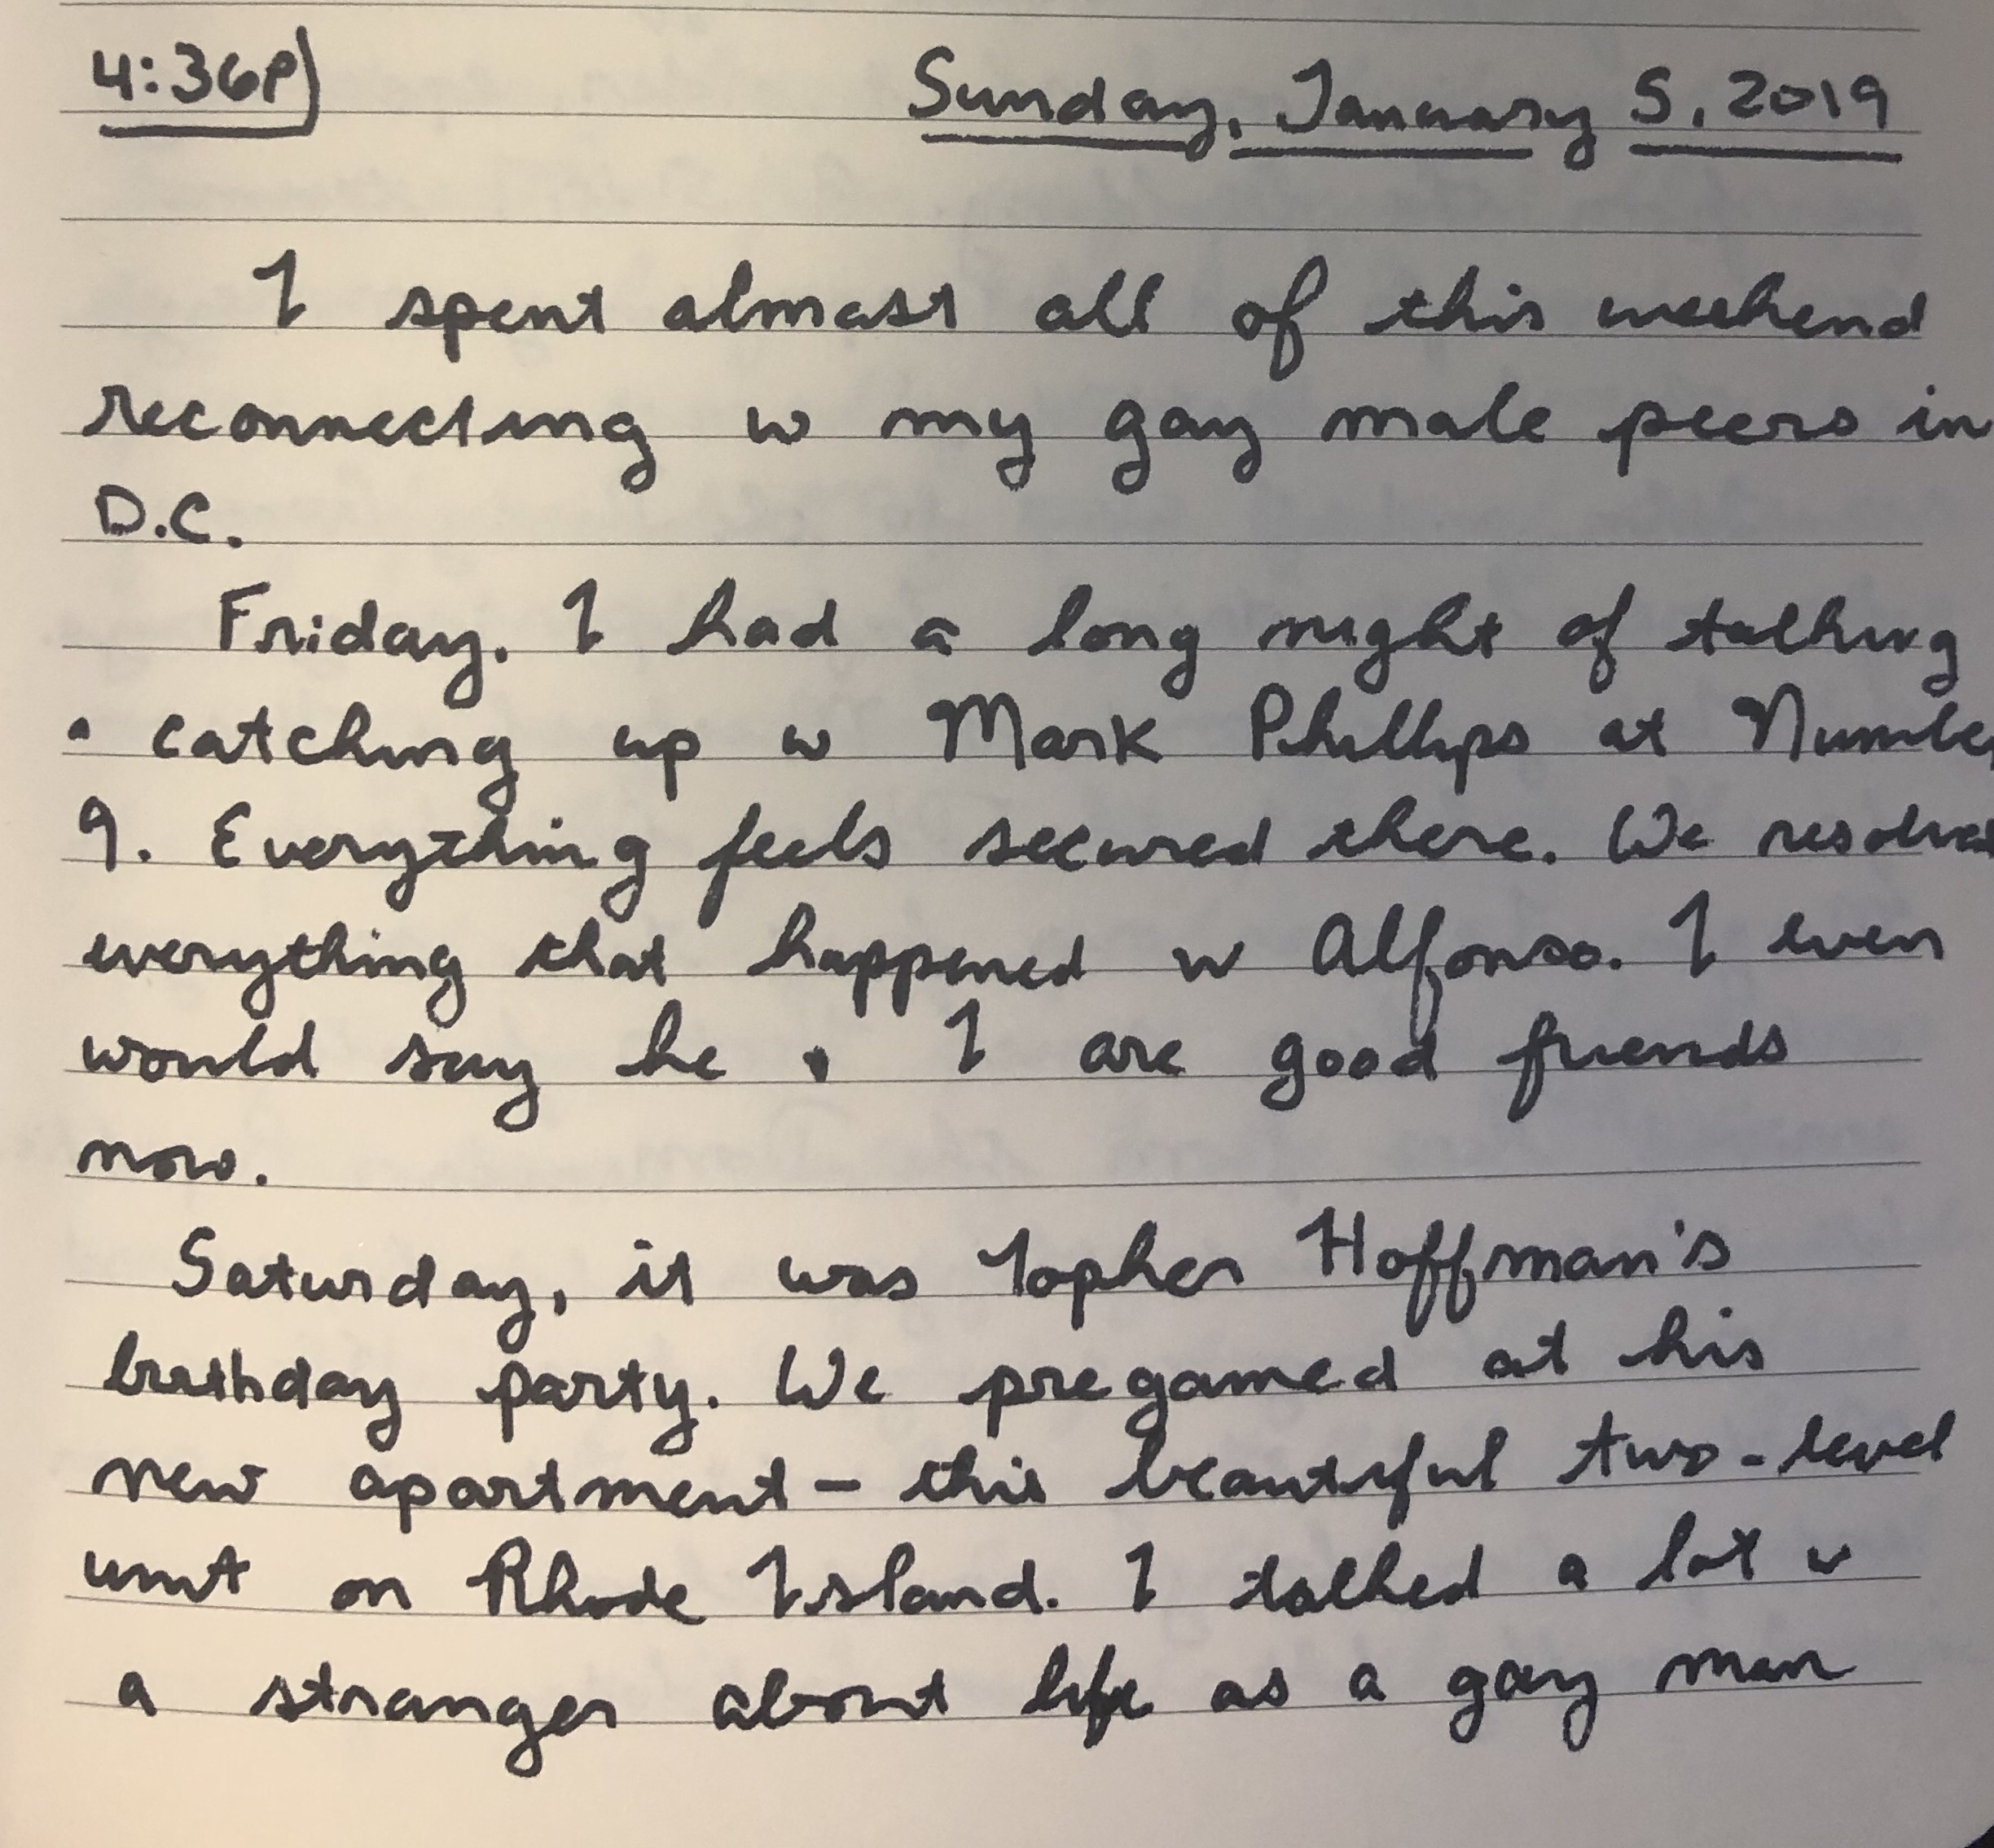 4:36P) Sunday, January 5, 2019
I spent almost all of this weekend
reconnecting w my gay male peers in
D.C.
Friday. I had a long night of talking
+ catching up w Mark Phillips at Number
9. Everything feels secured there. We resolved
everything that happened w Alfonso. I even
would say he + I are good friends
now.
Saturday, it was Topher Hoffman's
birthday party. We pregamed at his
new apartment – this beautiful two-level
unit on Rhode Island. I talked a lot w
a stranger about life as a gay man